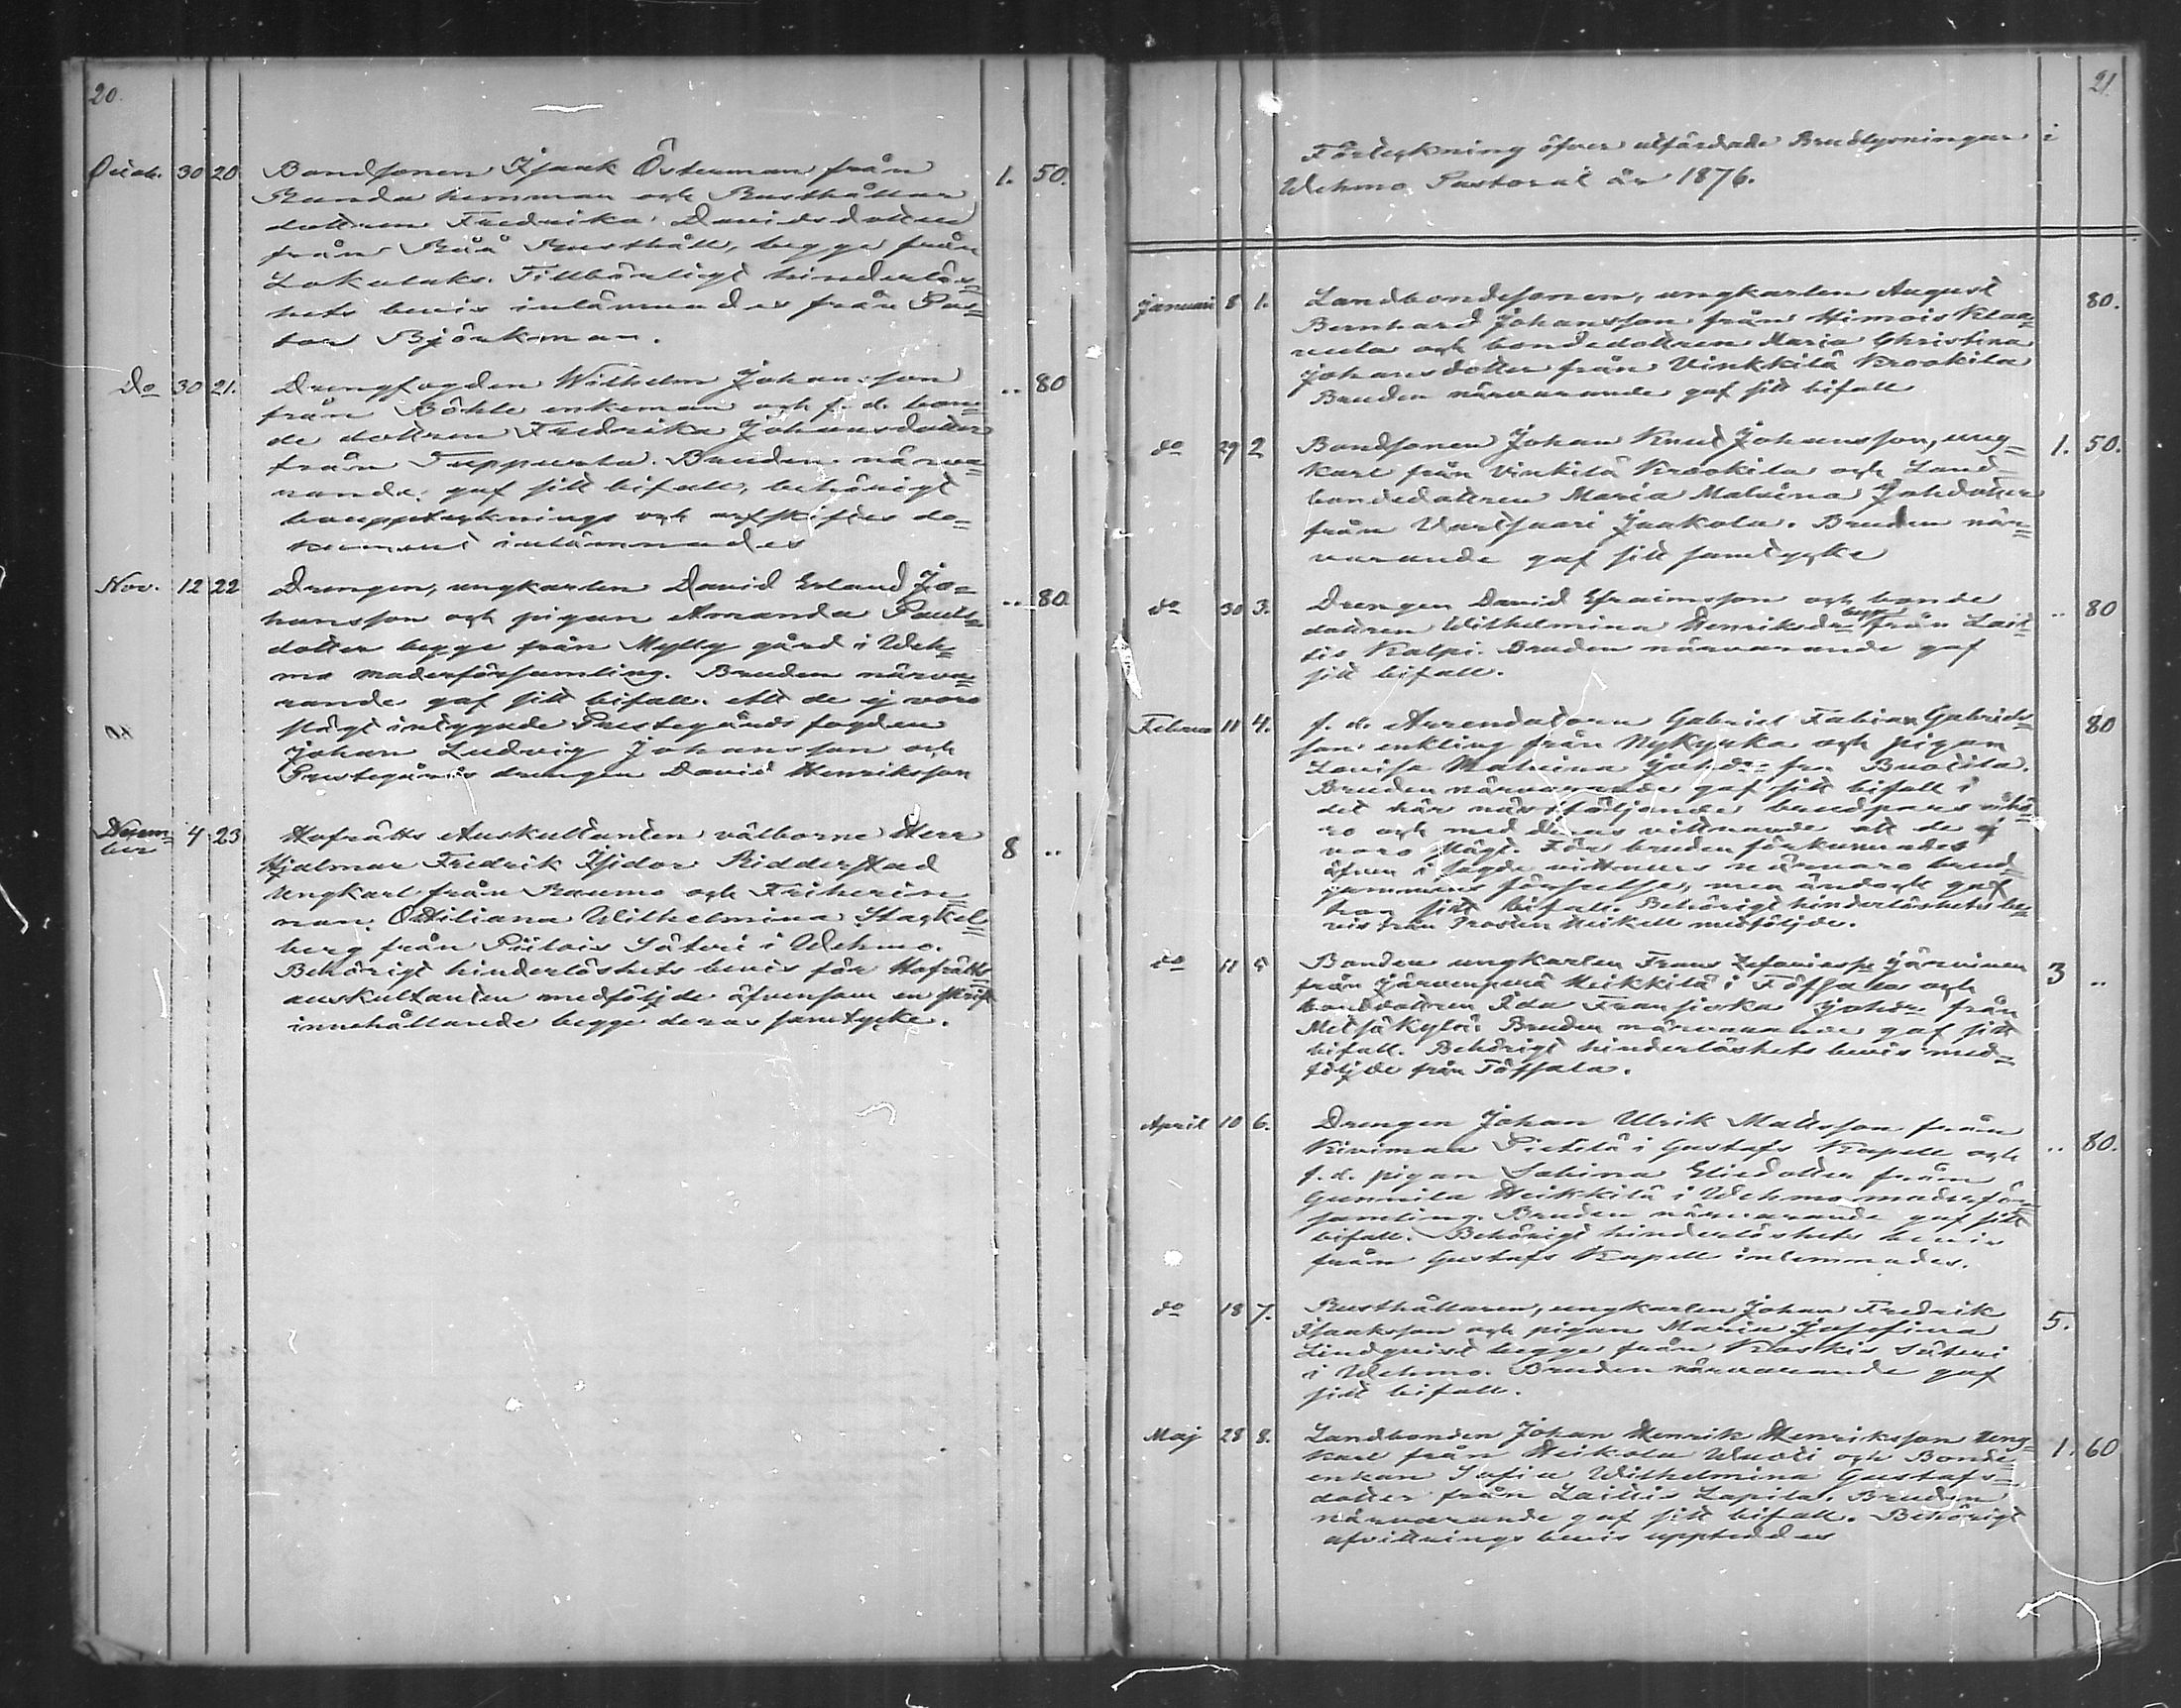 20.
Octob. 30 20 Bondsonen Isaak Österman från 1. 50.
Runda hemman och Rusthållar
dottren Fredrika Davidsdotter
från Rusthåll, begge från
Lokalaks. Tillbörligt hinderlös=
hets bevis inlämnades från Pas=
tor Björkman.
Do 30 21. Drengfogden Wilhelm Johansson .. 80
från Böhle enkeman och f. d. bon=
de dottren Fredrika Johansdotter
från Tuppurla. Bruden närva=
rande gaf sitt bifall, behörigt
bouppteknings och arfskiftes do=
kument inlämnades
Nov. 12 22 Drengen, ungkarlen David Erland Jo= .. 80.
hansson och pigan Amanda Pauls=
dotter begge från Mylly gård i Weh=
mo moderförsamling. Bruden närva=
rande gaf sitt bifall. Att de ej voro
slägt intygade Prestegårds fogden
Johan Ludvig Johansson och
Prestegårds drengen David Henriksson
Decem= 4 23 Hofrätts Auskultanten välborne Herr 8 ..
ber Hjalmar Fredrik Isidor Ridderstad
Ungkarl från Raumo och Friherin=
nan Ottiliana Wilhelmina Stackel=
berg från Piilois Säteri i Wehmo.
Behörigt hinderlöshets bevis för Hofrätts
auskultanten medföljde äfvensom en skrift
innehållande begge deras samtycke.
21.
Förtekning öfver utfärdade Brudlysningar i
Wehmo Pastorat år 1876.
Januari 8 1. Landbondesonen, ungkarlen August 80.
Bernhard Johansson från Himois Klaa=
vula och bondedottren Maria Christina
Johansdotter från Vinkkilä Krookila
Bruden närvarande gaf sitt bifall
do 29 2 Bondsonen Johan Knut Johansson, ung= 1. 50.
karl från Vinkilä Krookila och Land=
bondedottren Maria Malvina Johdotter
från Vartsaari Jaakola. Bruden när=
varande gaf sitt samtycke
do 30 3. Drengen David Efraimsson och bonde .. 80
dottren Wilhelmina Henriksdr begge från Lait=
tis Kalpi. Bruden närvarande gaf
sitt bifall.
Februari 11 4. f. d. Arrendatorn Gabriel Fabian Gabriels= 80
son enkling från Nykyrka och pigan
Lovisa Malvina Johdr frn Buotila.
Bruden närvarande gaf sitt bifall i
det här näst följande brudpars närva=
ro och med deras vittnande att de ej
voro slägt. För bruden förkunnades
äfven i sagde vittnens närvaro brud=
gummens förseelse, men ändock gaf
hon sitt bifall. Behörigt hinderlöshets be=
vis från Prosten Heikell medföljde.
do 11 5 Bonden ungkarlen Frans Zefaniass. Järvinen 3 ..
från Järvenperä Heikkilä i Töfsala och
bondedottren Ida Fransiska Johdr från
Metsäkylä. Bruden närvarande gaf sitt
bifall. Behörigt hinderlöshets bevis med=
följde från Töfsala.
April 10 6. Drengen Johan Ulrik Mattsson från .. 80.
Kivimaa Pietilä i Gustafs Kapell och
f. d. pigan Sabina Eliedotter från
Gunnila Heikkilä i Wehmo moderför=
samling. Bruden närvarande gaf sitt
bifall. Behörigt hinderlöshets bevis
från Gustafs Kapell inlemnades.
do 18 7. Rusthållaren, ungkarlen Johan Fredrik 5.
Isaaksson och pigan Maria Josefina
Lindqvist begge från Koskis Säteri
i Wehmo. Bruden närvarande gaf
sitt bifall.
Maj 28 8. Landbonden Johan Henrik Henriksson Ung= 1. 60
karl från Heikola Wuoti och Bonde=
enkan Sofia Wilhelmina Gustafs=
dotter från Laittis Lapila. Bruden
närvarande gaf sitt bifall. Behörigt
afvittrings bevis uppteddes